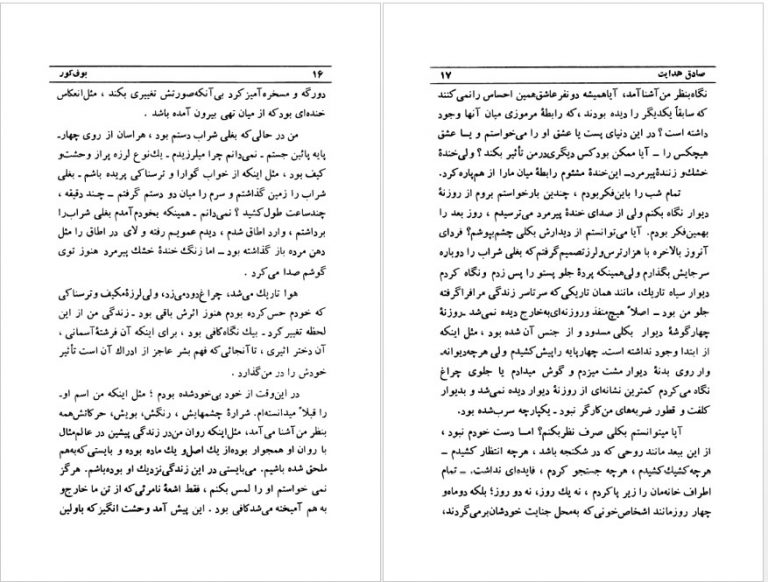 ۱۶ بوف‌کور
دورگه و مسخره‌آمیز کرد بی‌آنکه صورتش تغییری بکند ، مثل انعکاس
خنده‌ای بود که از میان تهی بیرون آمده باشد .
من در حالی که بغلی شراب دستم بود ، هراسان از روی چهار-
پایه پائین جستم ـ نمی‌دانم چرا میلرزیدم ـ یك نوع لرزه پر از وحشت و
کیف بود ، مثل اینکه از خواب گوارا و ترسناکی پریده باشم ـ بغلی
شراب را زمین گذاشتم و سرم را میان دو دستم گرفتم ـ چند دقیقه ،
چند ساعت طول کشید ؟ نمی‌دانم ـ همینکه بخودم آمدم بغلی شراب را
برداشتم ، وارد اطاق شدم ، دیدم عمویم رفته و لای در اطاق را مثل
دهن مرده باز گذاشته بود ـ اما زنگ خندۀ خشك پیرمرد هنوز توی
گوشم صدا می‌کرد .
هوا تاریك می‌شد، چراغ دود می‌زد، ولی لرزۀ مکیف و ترسناکی
که خودم حس کرده بودم هنوز اثرش باقی بود ـ زندگی من از این
لحظه تغییر کرد ـ بیك نگاه کافی بود ، برای اینکه آن فرشتۀ آسمانی ،
آن دختر اثیری ، تا آنجائی که فهم بشر عاجز از ادراك آن است تأثیر
خودش را در من میگذارد .
در این‌وقت از خود بی‌خود شده بودم ؛ مثل اینکه من اسم او
را قبلاً میدانسته‌ام. شرارۀ چشمهایش ، رنگش، بویش، حرکاتش همه
بنظر من آشنا می‌آمد، مثل اینکه روان من در زندگی پیشین در عالم مثال
با روان او همجوار بوده از یك اصل و یك ماده بوده و بایستی که بهم
ملحق شده باشیم. می‌بایستی در این زندگی نزدیك او بوده باشم. هرگز
نمی خواستم او را لمس بکنم ، فقط اشعۀ نامرئی که از تن ما خارج و
به هم آمیخته می‌شد کافی بود . این پیش آمد وحشت انگیز که باولین
صادق هدایت ۱۷
نگاه بنظر من آشنا آمد، آیا همیشه دو نفر عاشق همین احساس را نمی‌کنند
که سابقاً یکدیگر را دیده بودند، که رابطۀ مرموزی میان آنها وجود
داشته است ؟ در این دنیای پست یا عشق او را می‌خواستم و یا عشق
هیچکس را ـ آیا ممکن بود کس دیگری در من تأثیر بکند ؟ ولی خندۀ
خشك و زنندۀ پیرمرد ـ این خندۀ مشئوم رابطۀ میان ما را از هم پاره کرد.
تمام شب را باین فکر بودم ، چندین بار خواستم بروم از روزنۀ
دیوار نگاه بکنم ولی از صدای خندۀ پیرمرد می‌ترسیدم ، روز بعد را
بهمین فکر بودم. آیا می‌توانستم از دیدارش بکلی چشم بپوشم؟ فردای
آنروز بالاخره با هزار ترس و لرز تصمیم گرفتم که بغلی شراب را دوباره
سر جایش بگذارم ولی همینکه پردۀ جلو پستو را پس زدم و نگاه کردم
دیوار سیاه تاریك، مانند همان تاریکی که سرتاسر زندگی مرا فراگرفته
جلو من بود ـ اصلاً هیچ منفذ و روزنه‌ای به خارج دیده نمی‌شد ـ روزنۀ
چهار گوشۀ دیوار بکلی مسدود و از جنس آن شده بود ، مثل اینکه
از ابتدا وجود نداشته است. چهارپایه را پیش کشیدم ولی هرچه دیوانه-
وار روی بدنۀ دیوار مشت میزدم و گوش میدادم یا جلوی چراغ
نگاه می‌کردم کمترین نشانه‌ای از روزنۀ دیوار دیده نمی‌شد و بدیوار
کلفت و قطور ضربه‌های من کارگر نبود ـ یکپارچه سرب شده بود.
آیا میتوانستم بکلی صرف نظر بکنم؟ اما دست خودم نبود ،
از این ببعد مانند روحی که در شکنجه باشد ، هرچه انتظار کشیدم ـ
هرچه کشیك کشیدم ، هرچه جستجو کردم ، فایده‌ای نداشت. ـ تمام
اطراف خانه‌مان را زیر پا کردم ، نه یك روز، نه دو روز؛ بلکه دو ماه و
چهار روز مانند اشخاص خونی که به محل جنایت خودشان برمی‌گردند،